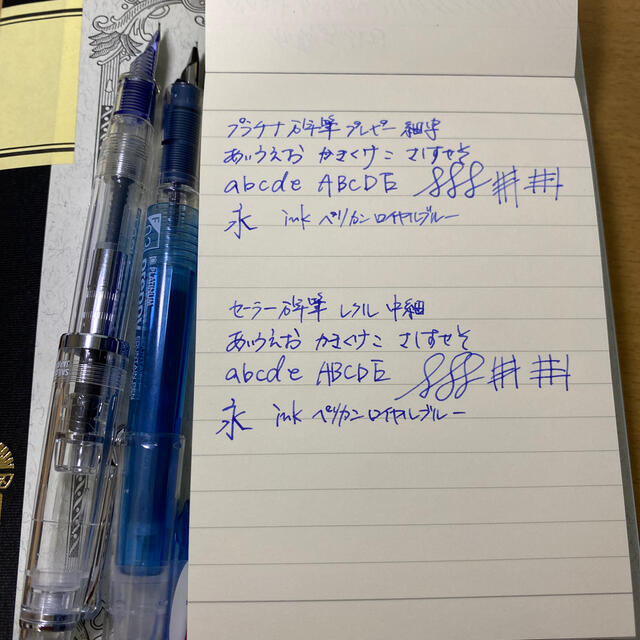 プラチナ万年筆 プレピー 細字
あいうえお かきくけこ さしすせそ
abcde ABCDE
永 ink ペリカン ロイヤルブルー
セーラー万年筆 レクル 中細
あいうえお かきくけこ さしすせそ
abcde ABCDE
永 ink ペリカン ロイヤルブルー
PLATINUM